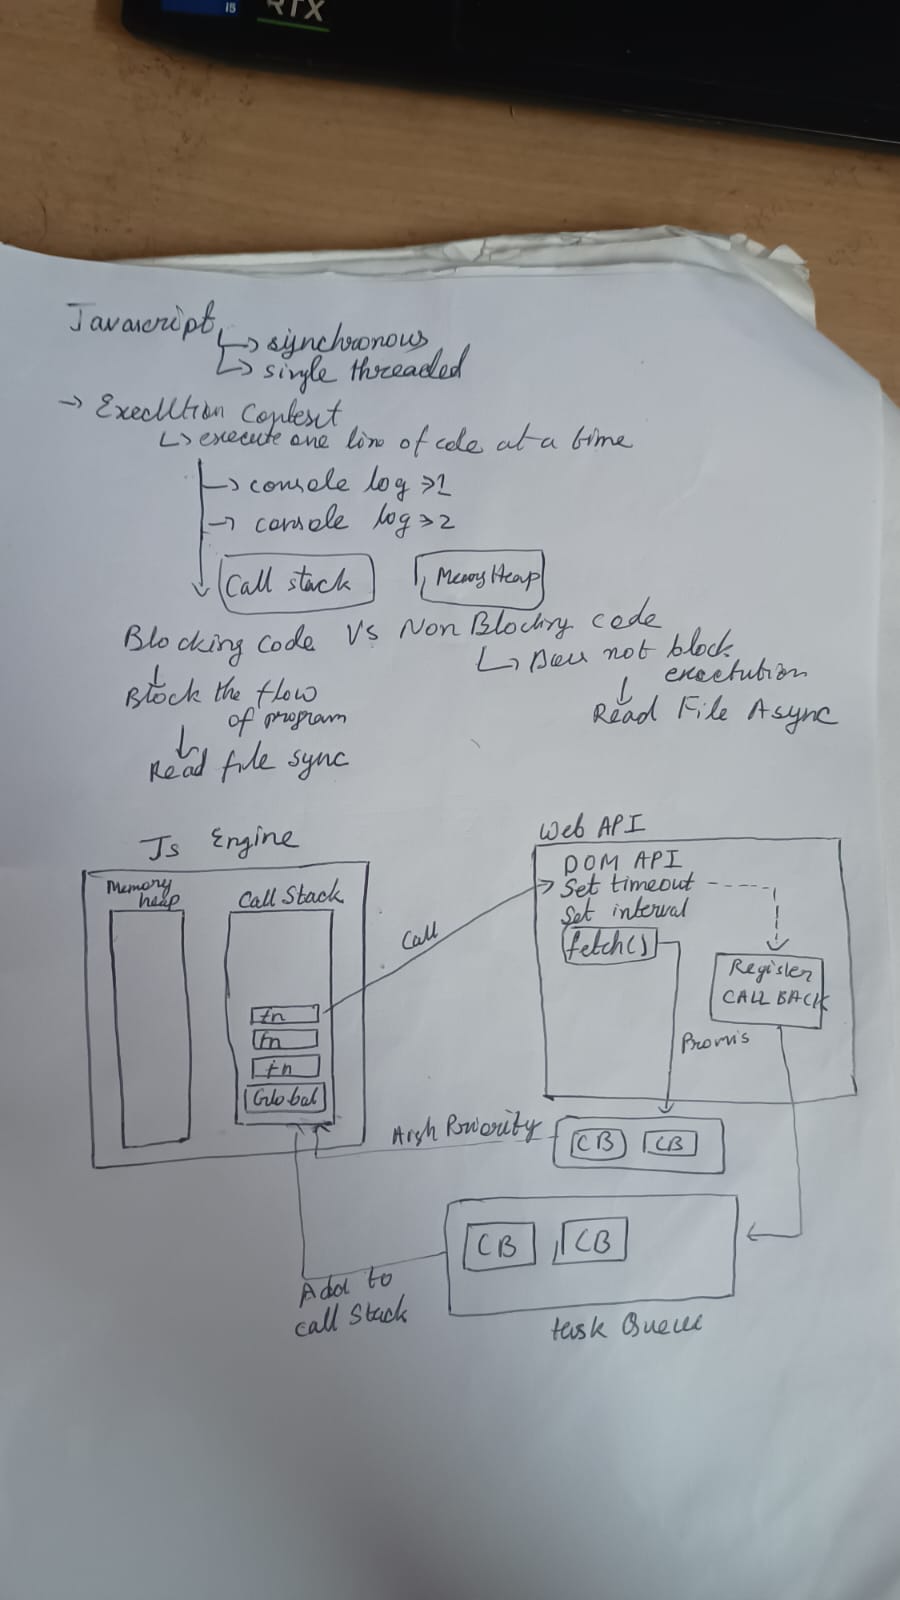 i5
RTX
Javascript
↳ synchronous
↳ single threaded
→ Execution Context
↳ execute one line of code at a time
→ console log → 1
→ console log → 2
Call stack
Memory Heap
Blocking code VS Non Blocking code
↳ Does not block
execution
Block the flow
of program
Read File Async
Read file sync
Js Engine
Web API
Memory
heap
Call Stack
DOM API
Set timeout
Set interval
fetch()
Call
Register
CALL BACK
fn
fn
fn
Global
Promis
High Priority
CB CB
CB CB
Add to
call Stack
task Queue